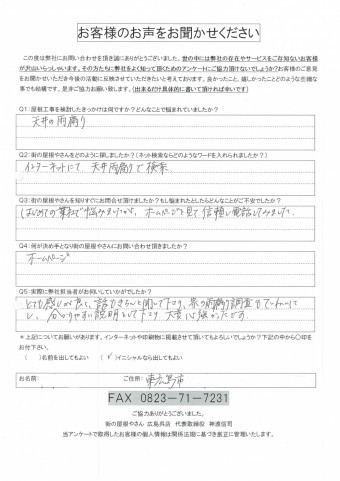 お客様のお声をお聞かせください
この度は弊社にお問い合わせを頂き誠にありがとうございました。世の中には弊社の存在やサービスをご存知ないお客様
が沢山いらっしゃいます。その方たちに弊社をよく知って頂くためのアンケートにご協力頂けないでしょうか？お客様のご意見
をお聞かせいただき今後の活動に反映させていただきたいと考えております。良かったこと、嬉しかったことどのような些細な
事でも結構です。是非ご協力お願い致します。(出来るだけ具体的に書いて頂ければ幸いです)
Q1：屋根工事を検討したきっかけは何ですか？どんなことで悩まれていましたか？
天井の雨漏り
Q2：街の屋根やさんをどのように探しましたか？(ネット検索ならどのようなワードを入れられましたか？)
インターネットにて、天井雨漏りで検索
Q3：街の屋根やさんを知りすぐにお問合せ頂けましたか？もし悩まれたとしたらどんなことがご不安でしたか？
はじめての業者で悩みましたが、ホームページを見て信頼し電話してみました。
Q4：何が決め手となり街の屋根やさんにお問い合わせ頂きましたか？
ホームページ
Q5：実際に弊社担当者がお伺いしていかがでしたか？
とても感じが良く、話もきちんと聞いて下さり、家の雨漏り調査も
し、分かりやすい説明をして下さり、大変心強かったです。
＊上記についてお願いがあります。インターネットや印刷物に掲載させて頂いてもよろしいでしょうか？下記の中から○印を
お付下さい。
( )名前を出してもよい (✓)イニシャルなら出してもよい
お名前： ご住所： 東広島市
FAX 0823-71-7231
ご協力ありがとうございました。
街の屋根やさん 広島呉店 代表取締役 神渡信司
当アンケートで取得したお客様の個人情報は関係法規に基づき厳正に管理いたします。